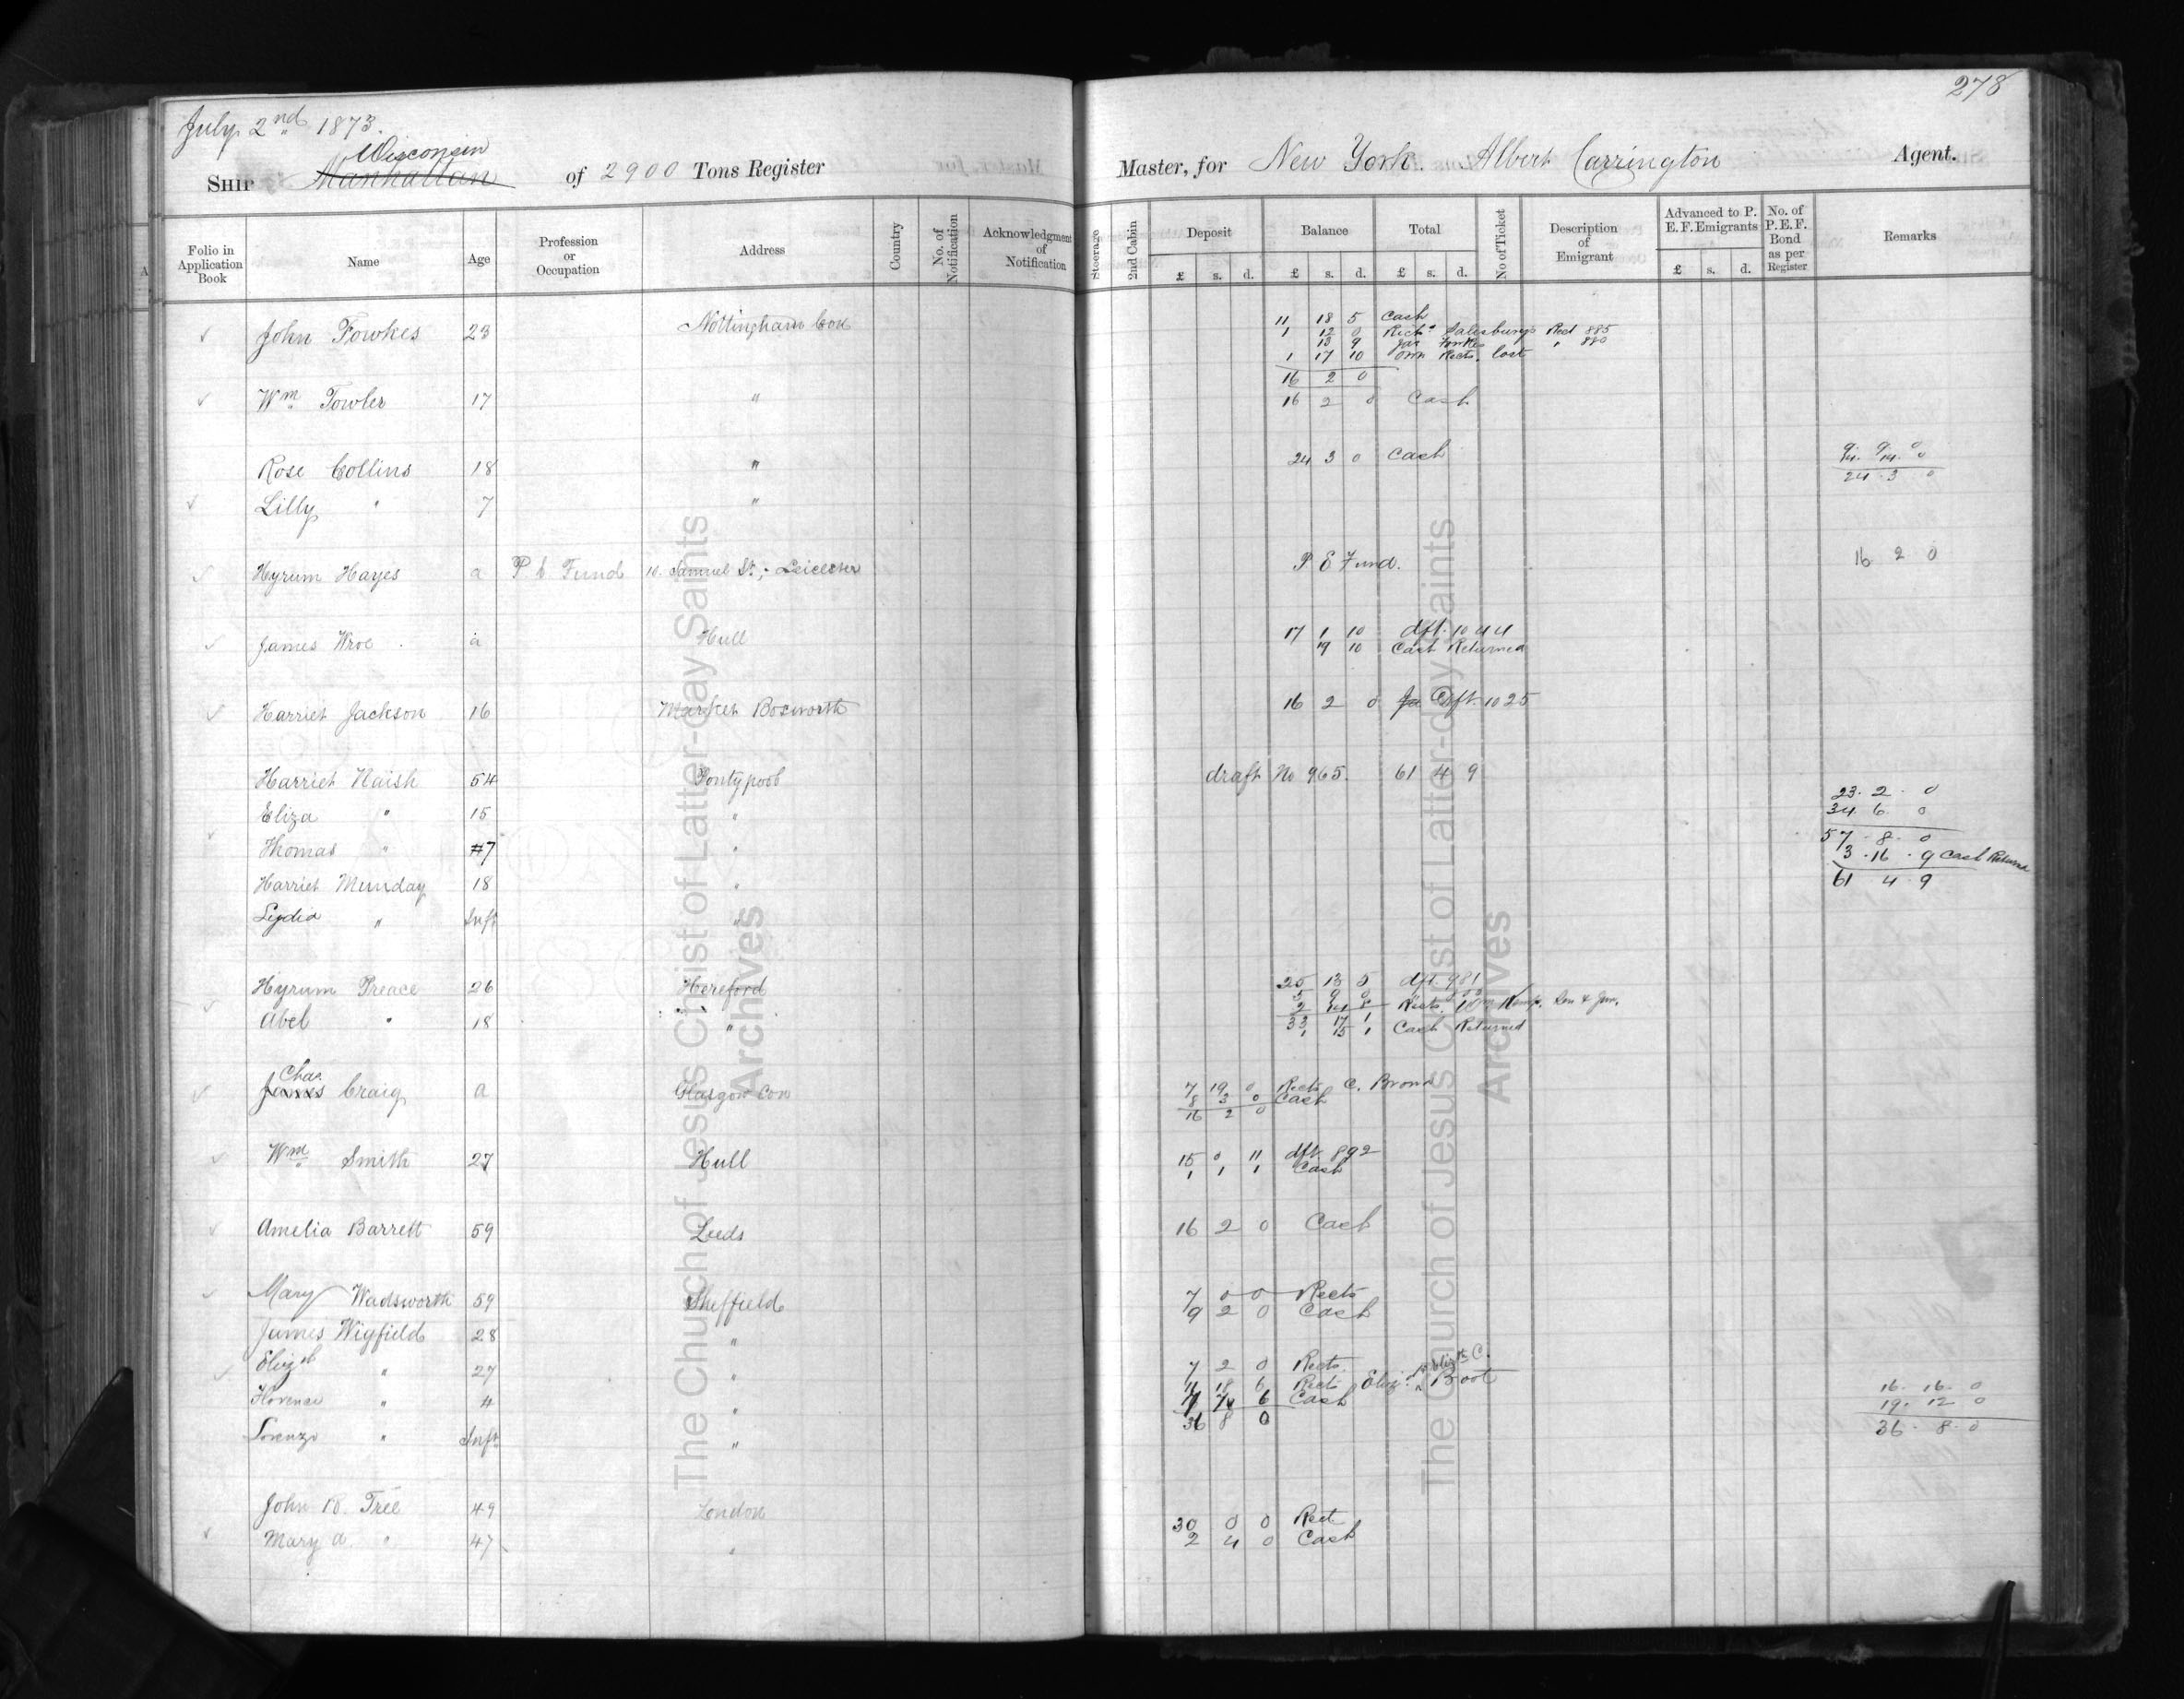 278
July 2nd 1873.
Wisconsin
SHIP Manhattan of 2900 Tons Register Master, for New York. Albert Carrington Agent.
Folio in Application Book Name Age Profession or Occupation Address Country No. of Notification Acknowledgment of Notification Steerage 2nd Cabin Deposit £ s. d. Balance £ s. d. Total £ s. d. No of Ticket Description of Emigrant Advanced to P. E. F. Emigrants £ s. d. No. of P.E.F. Bond as per Register Remarks
John Fowkes 23 Nottingham Con 11 18 5 Cash
1 12 0 Richd Salesburys Rect 885
13 9 Jas Fowkes " 880
1 17 10 own Rects. lost
16 2 0
Wm Fowler 17 " 16 2 0 Cash
Rose Collins 18 " 24 3 0 Cash
24 3 0
Lilly " 7 "
Hyrum Hayes a P E Fund 10. Samuel St; Leicester P E Fund. 16 2 0
James Wroe a Hull 17 1 10 dft. 1044
19 10 Cash Returned
Harriet Jackson 16 Market Bosworth 16 2 0 dft. 1025
Harriet Naish 54 Pontypool draft No 965. 61 4 9
23. 2. 0
Eliza " 15 " 34 6 0
57. 8. 0
Thomas " 7 " 3. 16. 9 Cash Returned
61 4 9
Harriet Munday 18 "
Lydia " Inft "
Hyrum Preace 26 Hereford 25 13 5 dft. 981
5 9 0
2 14 8 Rects. Wm Kemp. Sen & Jun.
Abel " 18 " 33 17 1
1 15 1 Cash Returned
Chas.
James Craig a Glasgow Con 7 19 0 Rects C. Brown
8 3 0 Cash
16 2 0
Wm Smith 27 Hull 15 0 11 dft. 892
1 1 1 Cash
Amelia Barrett 59 Leeds 16 2 0 Cash
Mary Wadsworth 59 Sheffield 7 0 0 Rects
9 2 0 Cash
James Wigfield 28 "
Elizth " 27 " 7 2 0 Rects.
11 18 6 Rects Eliz. Boot
Florence " 4 " 6 Cash 16. 16. 0
36 8 0 19. 12 0
Lorenzo " Inft " 36. 8. 0
John B. Tree 49 London 30 0 0 Rect.
Mary A. " 47 " 2 4 0 Cash
The Church of Jesus Christ of Latter-day Saints
Archives
The Church of Jesus Christ of Latter-day Saints
Archives